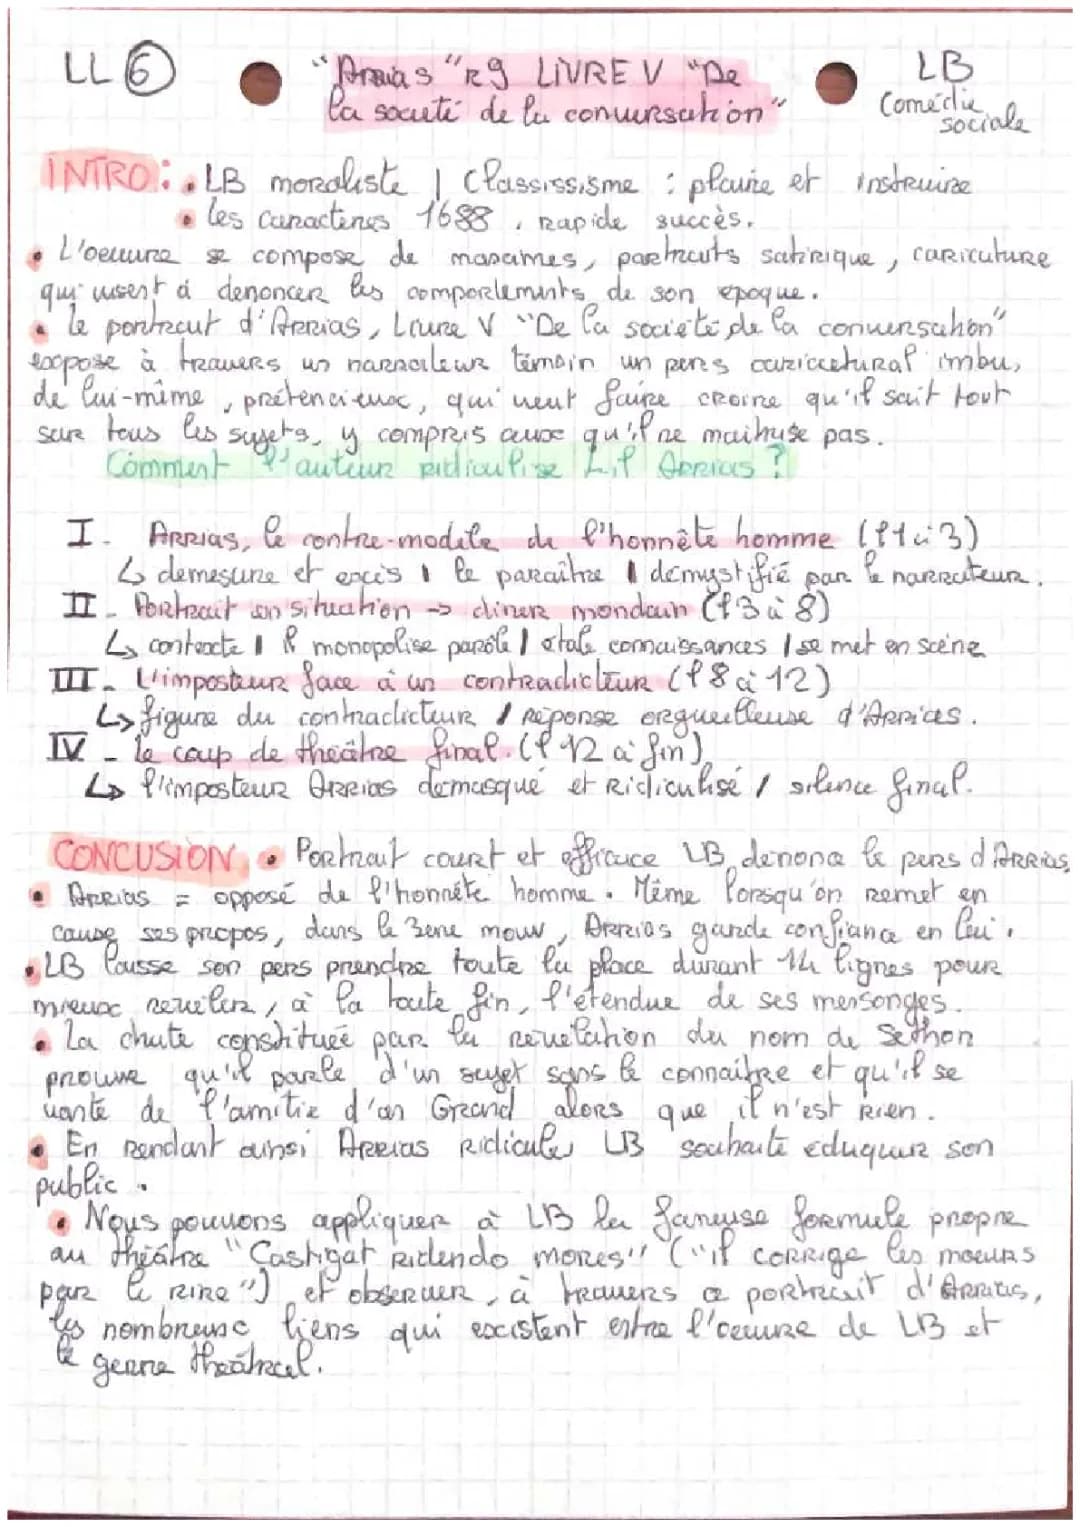 LL 6
"Arrias" R9 LIVRE V "De
la societé de la conversation"
LB
Comédie
sociale
INTRO : . LB moraliste | Classissisme : plaire et instruire
• Les caracteres 1688, rapide succès.
• L'oeuvre se compose de maximes, portraits satirique, caricature
qui visent à denoncer les comportements de son epoque.
• Le portrait d'Arrias, Livre V "De la societé de la conversation"
expose à travers un narrateur témoin un pers caricatural imbu,
de lui-même, prétencieux, qui veut faire croire qu'il sait tout
sur tous les sujets, y compris ceux qu'il ne maitrise pas.
Comment l'auteur ridiculise t-il Arrias ?
I. Arrias, le contre-modèle de l'honnête homme (l1 à 3)
↳ demesure et excès | le paraître | démystifié par le narrateur.
II - Portrait en situation -> diner mondain (l3 à 8)
↳ contexte | monopolise parole | etale connaissances | se met en scène
III - L'imposteur face à un contradicteur (l8 à 12)
↳ figure du contradicteur / réponse orgueilleuse d'Arrias.
IV - Le coup de théâtre final. (l 12 à fin)
↳ l'imposteur Arrias demasqué et Ridiculisé / silence final.
CONCUSION • Portrait court et efficace LB denonce le pers d'Arrias,
• Arrias = opposé de l'honnête homme. Même lorsqu'on remet en
cause ses propos, dans le 3eme mouv, Arrias garde confiance en lui.
• LB laisse son pers prendre toute la place durant 14 lignes pour
mieux reveler, à la toute fin, l'étendue de ses mensonges.
• La chute constituée par la révélation du nom de Sethon
prouve qu'il parle d'un sujet sans le connaître et qu'il se
vante de l'amitié d'un Grand alors que il n'est rien.
• En rendant ainsi Arrias ridicule, LB souhaite eduquer son
public.
• Nous pouvons appliquer à LB la fameuse formule propre
au théâtre "Castigat Ridendo mores" ("il corrige les moeurs
par le rire") et observer, à travers ce portrait d'Arrias,
les nombreux liens qui existent entre l'oeuvre de LB et
le genre théâtral.